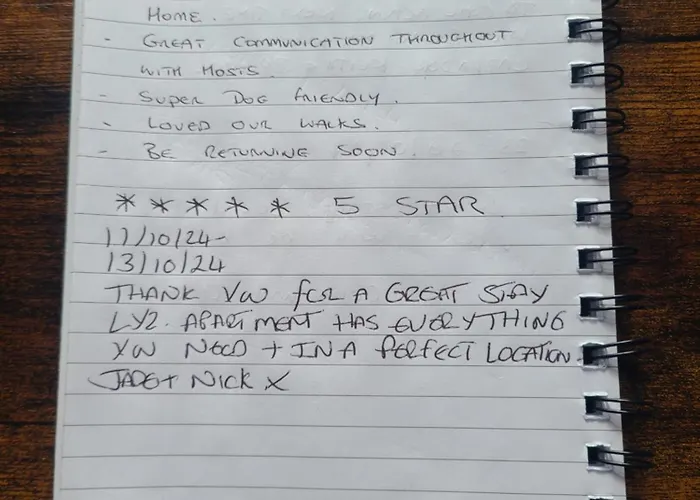 HOME.
- GREAT COMMUNICATION THROUGHOUT
WITH HOSTS.
- SUPER DOG FRIENDLY.
- LOVED OUR WALKS.
- BE RETURNING SOON.
* * * * * 5 STAR
11/10/24-
13/10/24
THANK YOU FOR A GREAT STAY
APARTMENT HAS EVERYTHING
YOU NEED + IN A PERFECT LOCATION.
JADE + NICK X